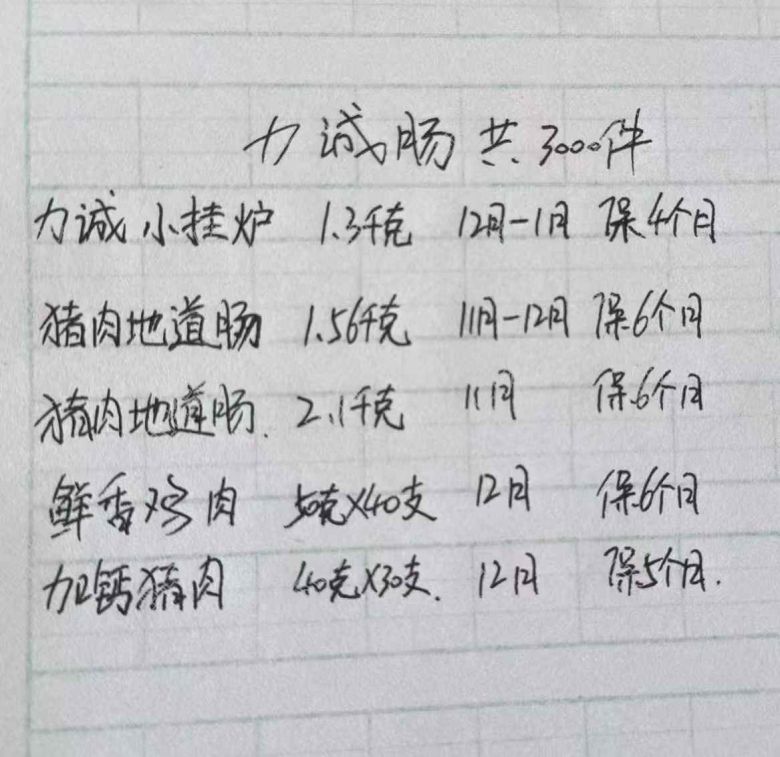 力诚肠 共3000件
力诚小挂炉 1.3千克 12月-1月 保4个月
猪肉地道肠 1.56千克 11月-12月 保6个月
猪肉地道肠. 2.1千克 11月 保6个月
鲜香鸡肉 50克×40支 12月 保6个月
加钙猪肉 40克×30支. 12月 保5个月.